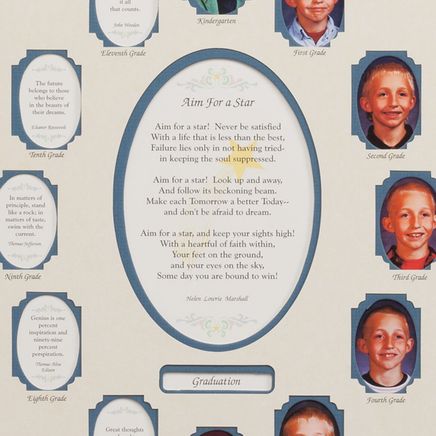 it all
that counts.
John Wooden
Eleventh Grade
Kindergarten
First Grade
The future
belongs to those
who believe
in the beauty of
their dreams.
Eleanor Roosevelt
Tenth Grade
Second Grade
In matters of
principle, stand
like a rock; in
matters of taste,
swim with the
current.
Thomas Jefferson
Ninth Grade
Third Grade
Genius is one
percent
inspiration and
ninety-nine
percent
perspiration.
Thomas Alva
Edison
Eighth Grade
Fourth Grade
Aim For a Star
Aim for a star! Never be satisfied
With a life that is less than the best,
Failure lies only in not having tried-
in keeping the soul suppressed.
Aim for a star! Look up and away,
And follow its beckoning beam.
Make each Tomorrow a better Today--
and don't be afraid to dream.
Aim for a star, and keep your sights high!
With a heartful of faith within,
Your feet on the ground,
and your eyes on the sky,
Some day you are bound to win!
Helen Lowrie Marshall
Graduation
Great thoughts